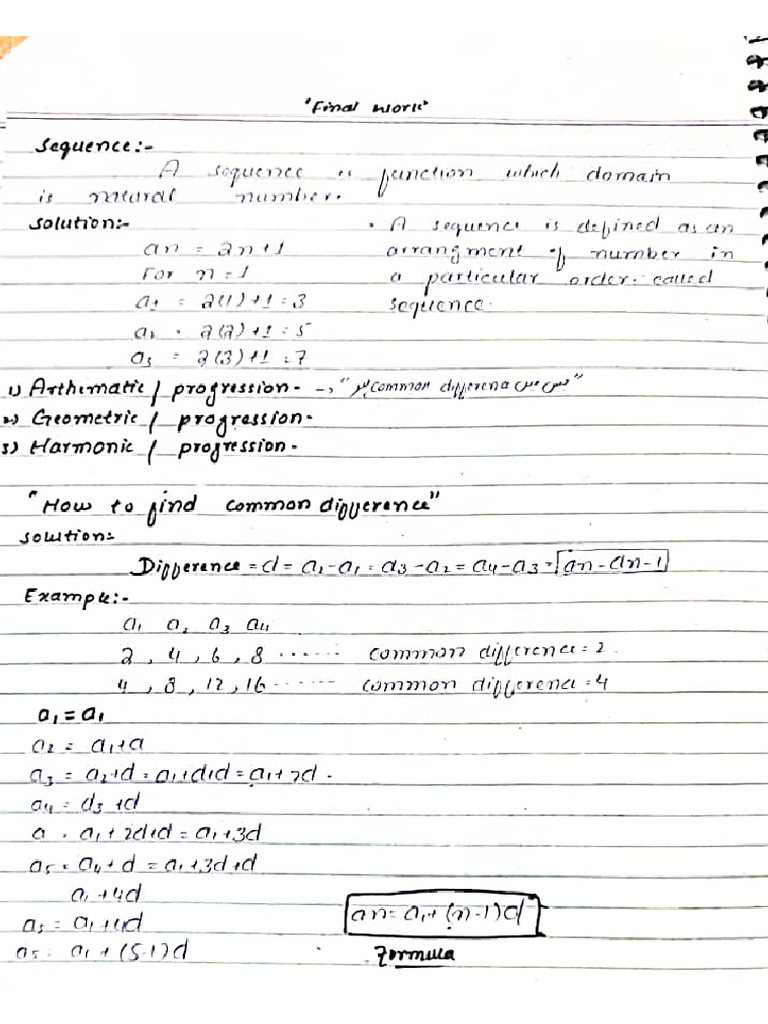 "Final work"
Sequence:-
A sequence is function which domain
is natural number.
Solution:-
an = 2n+1
For n = 1
a1 = 2(1)+1 = 3
a2 = 2(2)+1 = 5
a3 = 2(3)+1 = 7
• A sequence is defined as an
arrangment of number in
a particular order. called
sequence.
1) Arthimatic / progression - → "جس میں common differena ہو"
2) Geometric / progression -
3) Harmonic / progression -
"How to find common difference"
Solution:-
Difference = d = a2-a1 = a3-a2 = a4-a3 = an-an-1
Example:-
a1 a2 a3 a4
2, 4, 6, 8 ...... common difference = 2.
4, 8, 12, 16 ...... common difference = 4
a1 = a1
a2 = a1+d
a3 = a2+d = a1+d+d = a1+2d.
a4 = a3+d
a = a1+2d+d = a1+3d
a5 = a4+d = a1+3d+d
a1+4d
a5 = a1+4d
a5 = a1+(5-1)d
an = a1+(n-1)d
Formula